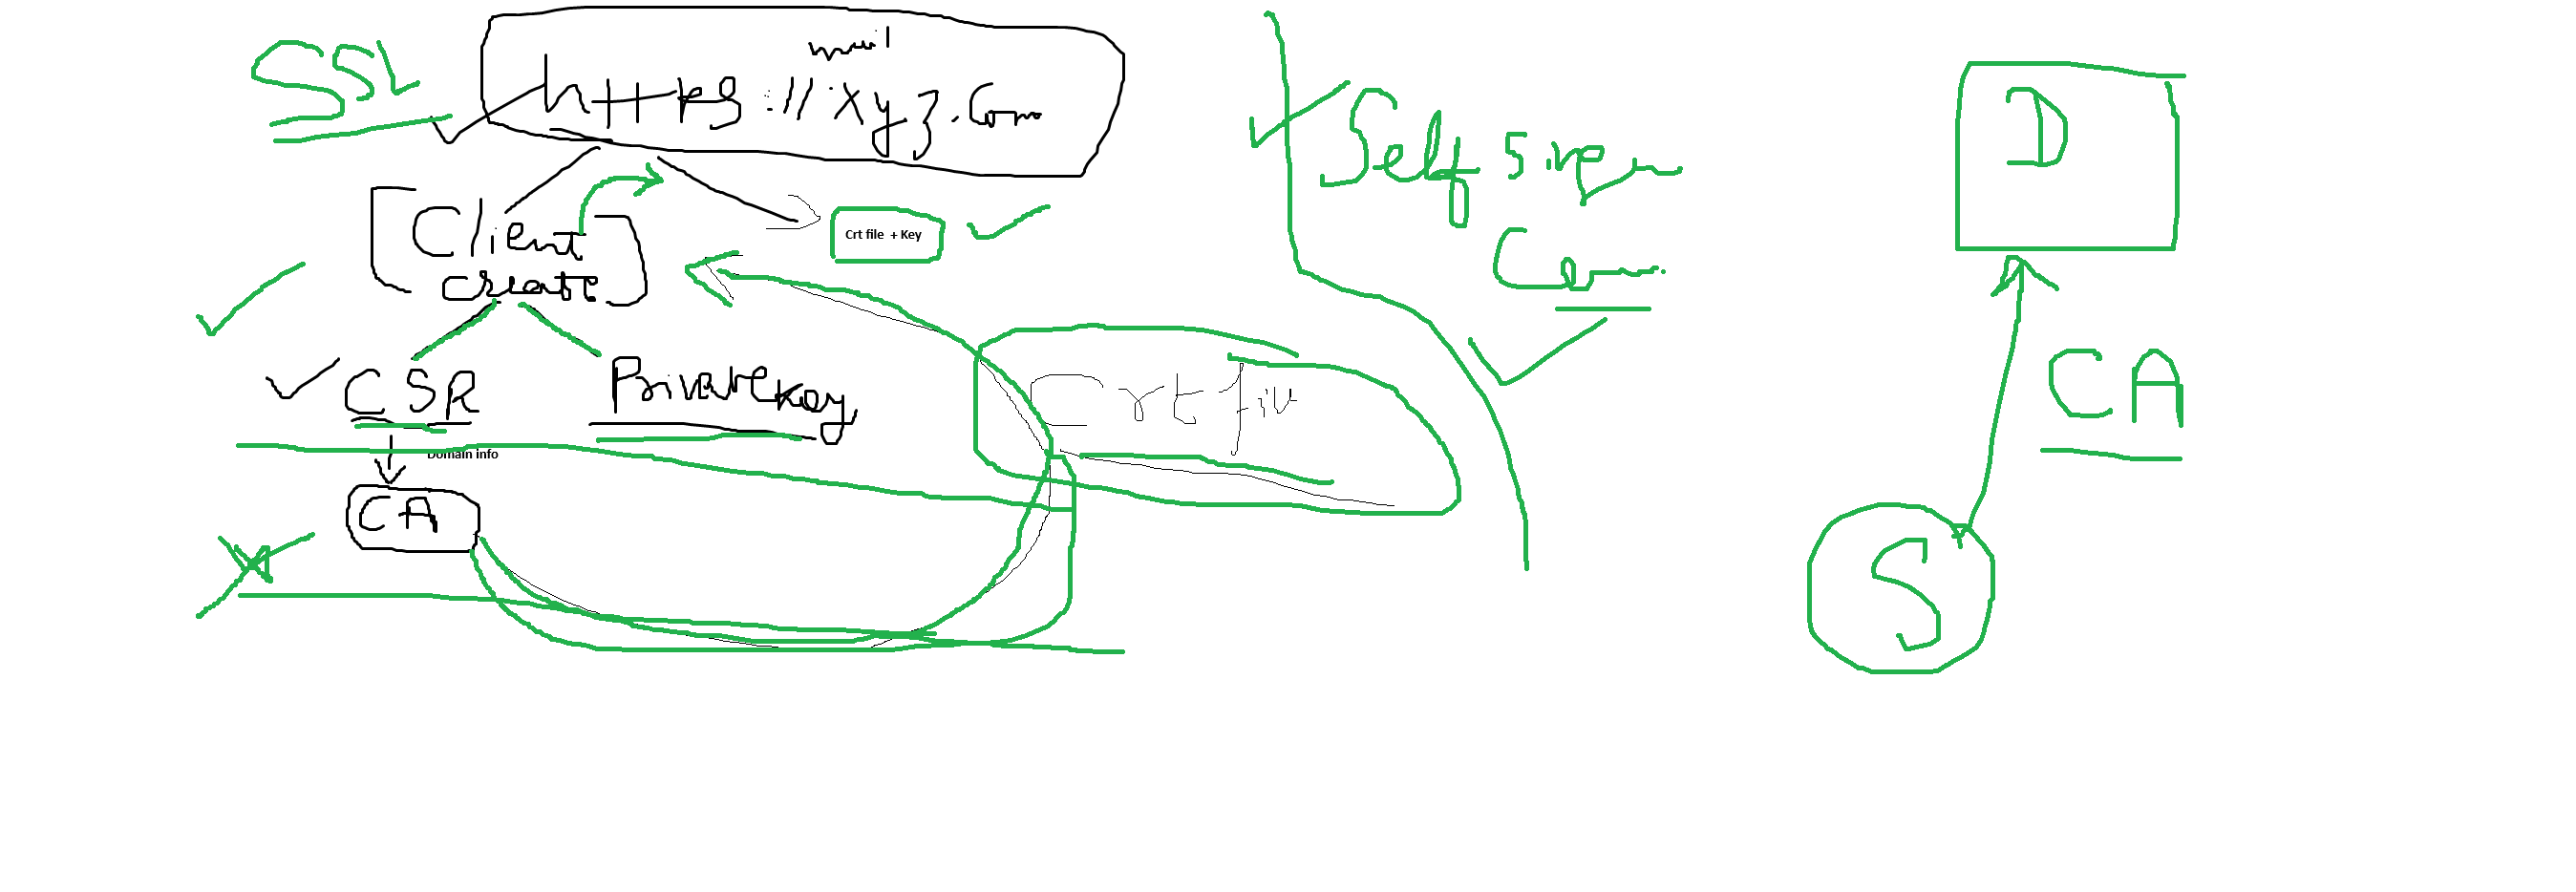 SSL
mail
https://xyz.com
Client
create
Crt file + Key
CSR
Private Key
Domain info
CA
Crt file
Self
D
CA
S